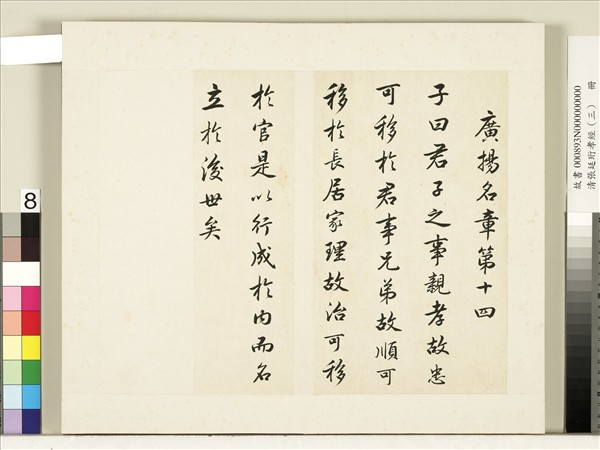 廣揚名章第十四
子曰君子之事親孝故忠
可移於君事兄弟故順可
移於長居家理故治可移
於官是以行成於內而名
立於後世矣
故書 000893N000000000
清張廷珩孝經（三） 冊
8